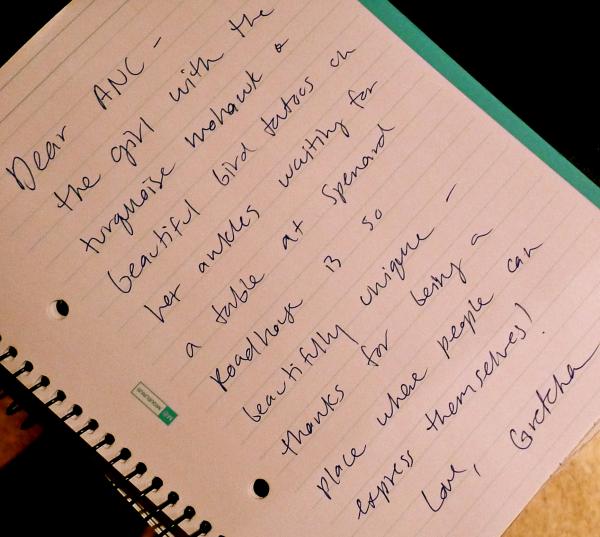 Dear ANC -
the girl with the
turquoise mohawk &
beautiful bird tatoos on
her ankles waiting for
a table at Spenard
Roadhouse is so
beautifully unique -
thanks for being a
place where people can
express themselves!
Love, Gretcha